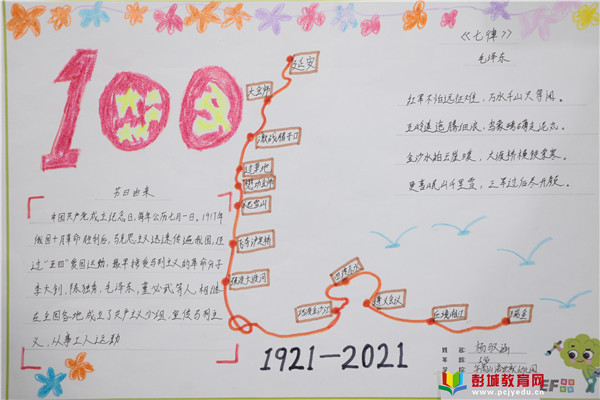 100
《七律》
毛泽东
红军不怕远征难，万水千山只等闲。
五岭逶迤腾细浪，乌蒙磅礴走泥丸。
金沙水拍云崖暖，大渡桥横铁索寒。
更喜岷山千里雪，三军过后尽开颜。
延安
大会师
激战腊子口
过草地
懋功会师
爬雪山
飞夺泸定桥
强渡大渡河
巧渡金沙江
四渡赤水
遵义会议
血战湘江
瑞金
节日由来
中国共产党成立纪念日，每年公历七月一日。1917年
俄国十月革命胜利后，马克思主义迅速传遍我国，经
过"五四"爱国运动，最早接受马列主义的革命分子
李大钊、陈独秀、毛泽东、董必武等人，相继
在全国各地成立了共产主义小组，宣传马列主
义，从事工人运动
1921-2021
姓名：
年龄：
学校：
EF
彭城教育网
www.pcjyedu.cn